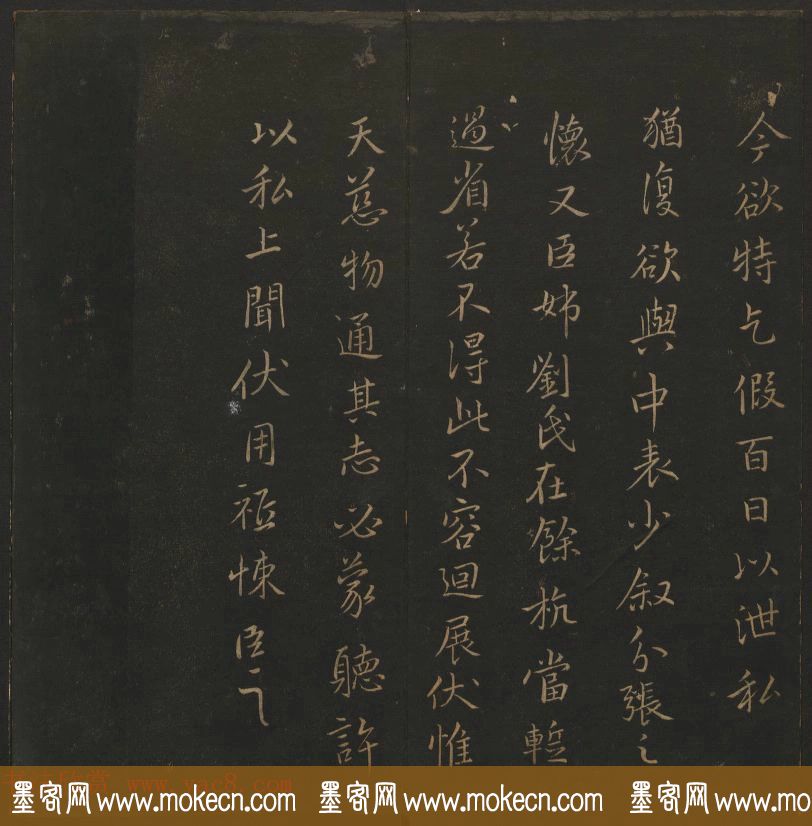 今欲特乞假百日以泄私
猶復欲與中表少叙分張之
懷又臣姊劉氏在餘杭當蹔
過省若不得此不容迴展伏惟
天慈物通其志必蒙聽許
以私上聞伏用祗悚臣
www.yac8.com
墨客网 www.mokecn.com 墨客网 www.mokecn.com 墨客网 www.mokecn.com